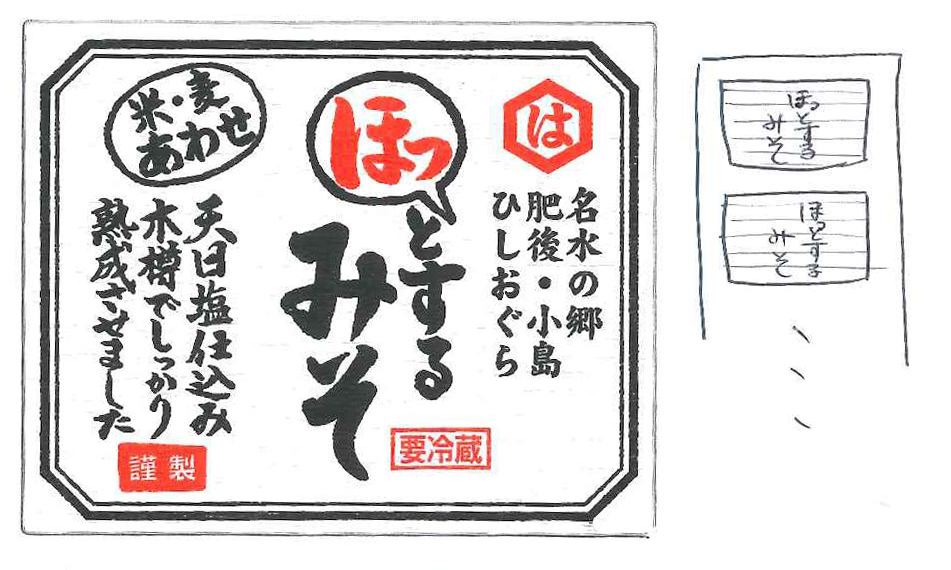 は
名水の郷
肥後・小島
ひしおぐら
ほっとする
みそ
要冷蔵
米・麦
あわせ
天日塩仕込み
木樽でしっかり
熟成させました
謹製
ほっとする
みそ
ほっとする
みそ